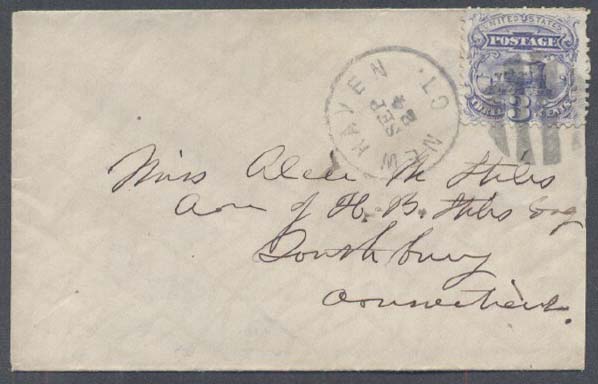 UNITED STATES
POSTAGE
THREE 3 CENTS
NEW HAVEN CT.
SEP
24
Miss Alice M Stiles
Care of H. B. Stiles Esq
Southbury
Connecticut.